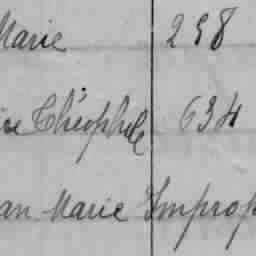 Marie 298
re Théophile 634
an Marie Improp